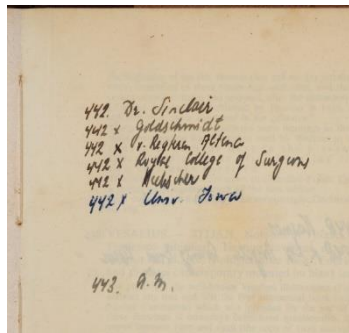 442. Dr. Sinclair
442 x Goldschmidt
442 x v. Regteren Altena
442 x Royal College of Surgeons
442 x Hubscher
442 x Univ. Iowa
443. A.M.